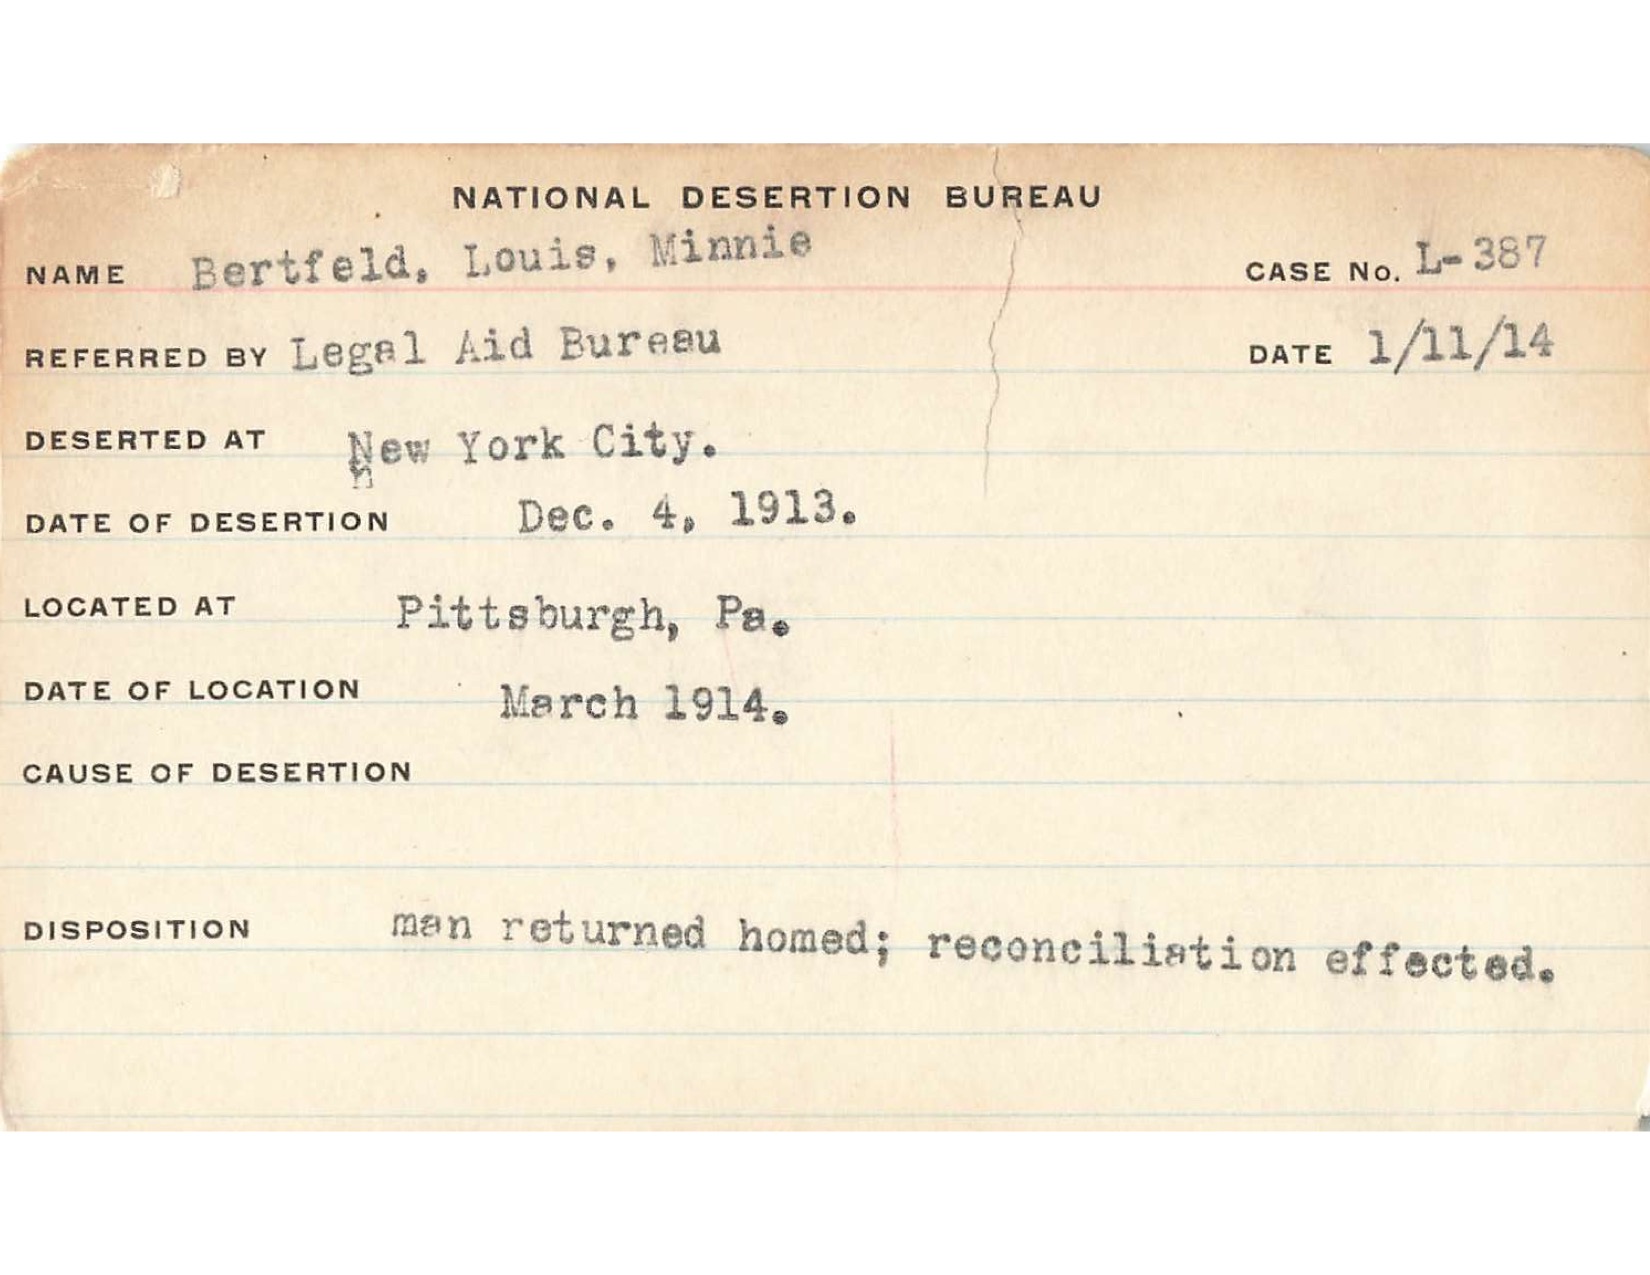 NATIONAL DESERTION BUREAU
NAME Bertfeld, Louis, Minnie CASE No. L-387
REFERRED BY Legal Aid Bureau DATE 1/11/14
DESERTED AT New York City.
DATE OF DESERTION Dec. 4, 1913.
LOCATED AT Pittsburgh, Pa.
DATE OF LOCATION March 1914.
CAUSE OF DESERTION
DISPOSITION man returned homed; reconciliation effected.